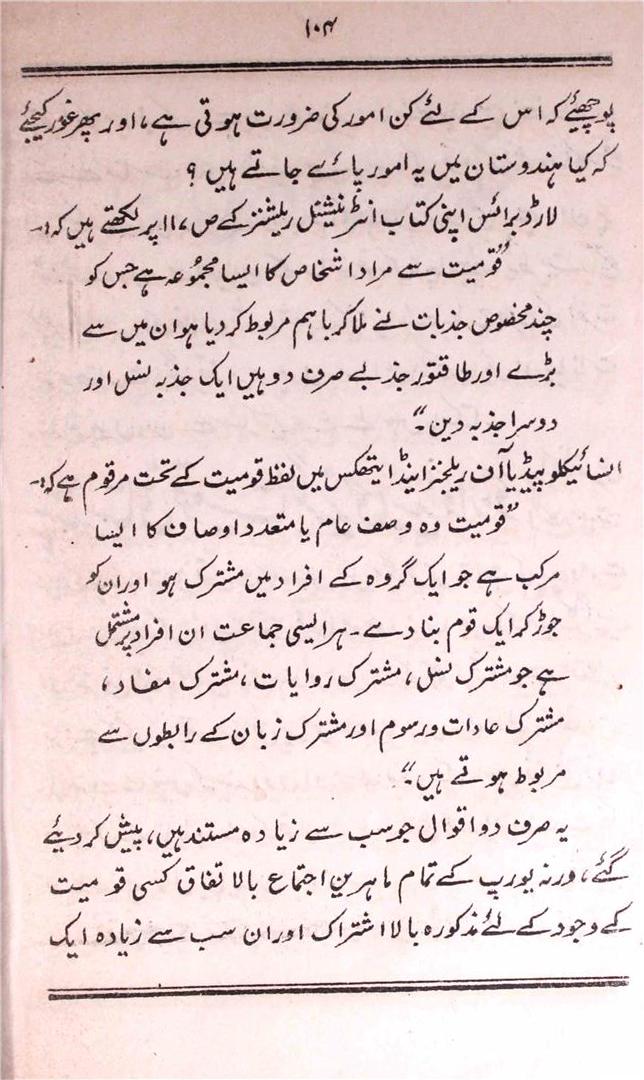 ۱۰۴
پوچھیئے کہ اس کے لئے کن امور کی ضرورت ہوتی ہے، اور پھر غور کیجئے
کہ کیا ہندوستان میں یہ امور پائے جاتے ہیں ؟
لارڈ برائس اپنی کتاب انٹرنیشنل ریلشنز کے ص ۱۱۷ پر لکھتے ہیں کہ:۔
"قومیت سے مراد اشخاص کا ایسا مجموعہ ہے جس کو
چند مخصوص جذبات نے ملا کر باہم مربوط کر دیا ہو ان میں سے
بڑے اور طاقتور جذبے صرف دو ہیں ایک جذبہ نسل اور
دوسرا جذبہ دین۔"
انسائیکلوپیڈیا آف ریلجنز اینڈ ایتھکس میں لفظ قومیت کے تحت مرقوم ہے کہ:۔
"قومیت وہ وصف عام یا متعدد اوصاف کا ایسا
مرکب ہے جو ایک گروہ کے افراد میں مشترک ہو اور ان کو
جوڑ کر ایک قوم بنا دے۔ ہر ایسی جماعت ان افراد پر مشتمل
ہے جو مشترک نسل، مشترک روایات، مشترک مفاد،
مشترک عادات و رسوم اور مشترک زبان کے رابطوں سے
مربوط ہوتے ہیں۔"
یہ صرف دو اقوال جو سب سے زیادہ مستند ہیں، پیش کر دیئے
گئے، ورنہ یورپ کے تمام ماہرین اجتماع بالاتفاق کسی قومیت
کے وجود کے لئے مذکورہ بالا اشتراک اور ان سب سے زیادہ ایک